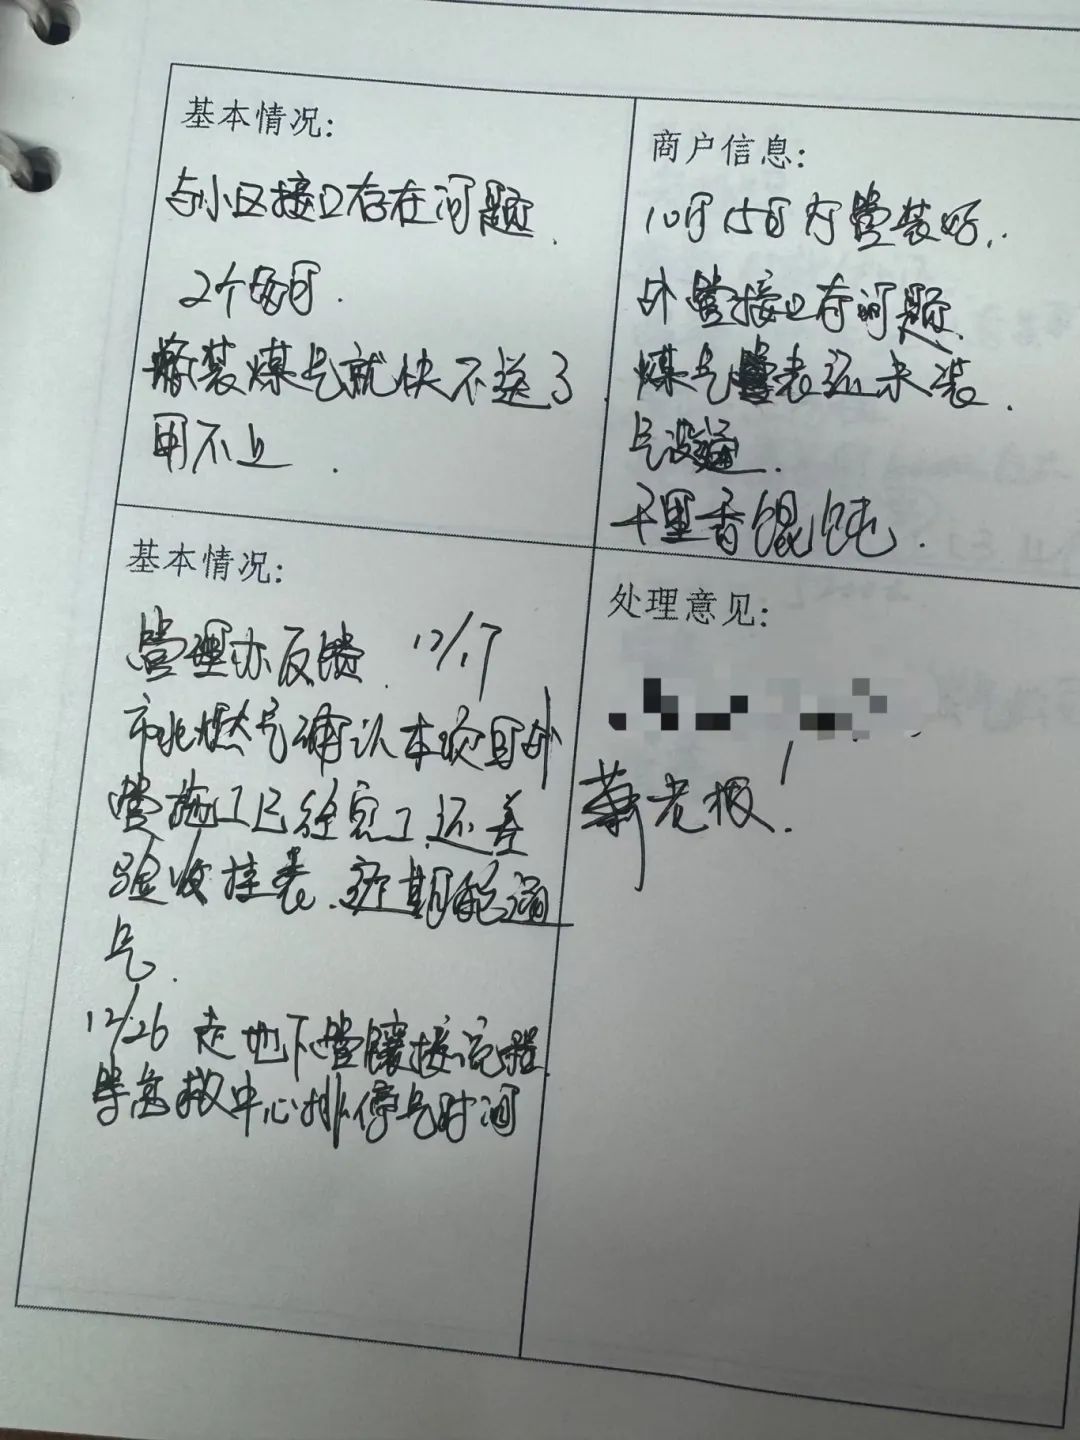 基本情况:
与小区接口存在问题.
2个多月.
瓶装煤气就快不送了.
用不上.
商户信息:
10月15日内管装好.
外管接口有问题.
煤气表还未装.
气没通.
千里香馄饨.
基本情况:
管理办反馈. 12/17
市北燃气确认本项目外
管施工已经完工.还差
验收挂表.近期能通
气.
12/26 走地下管镶接流程.
等急救中心排停气时间
处理意见:
老板.